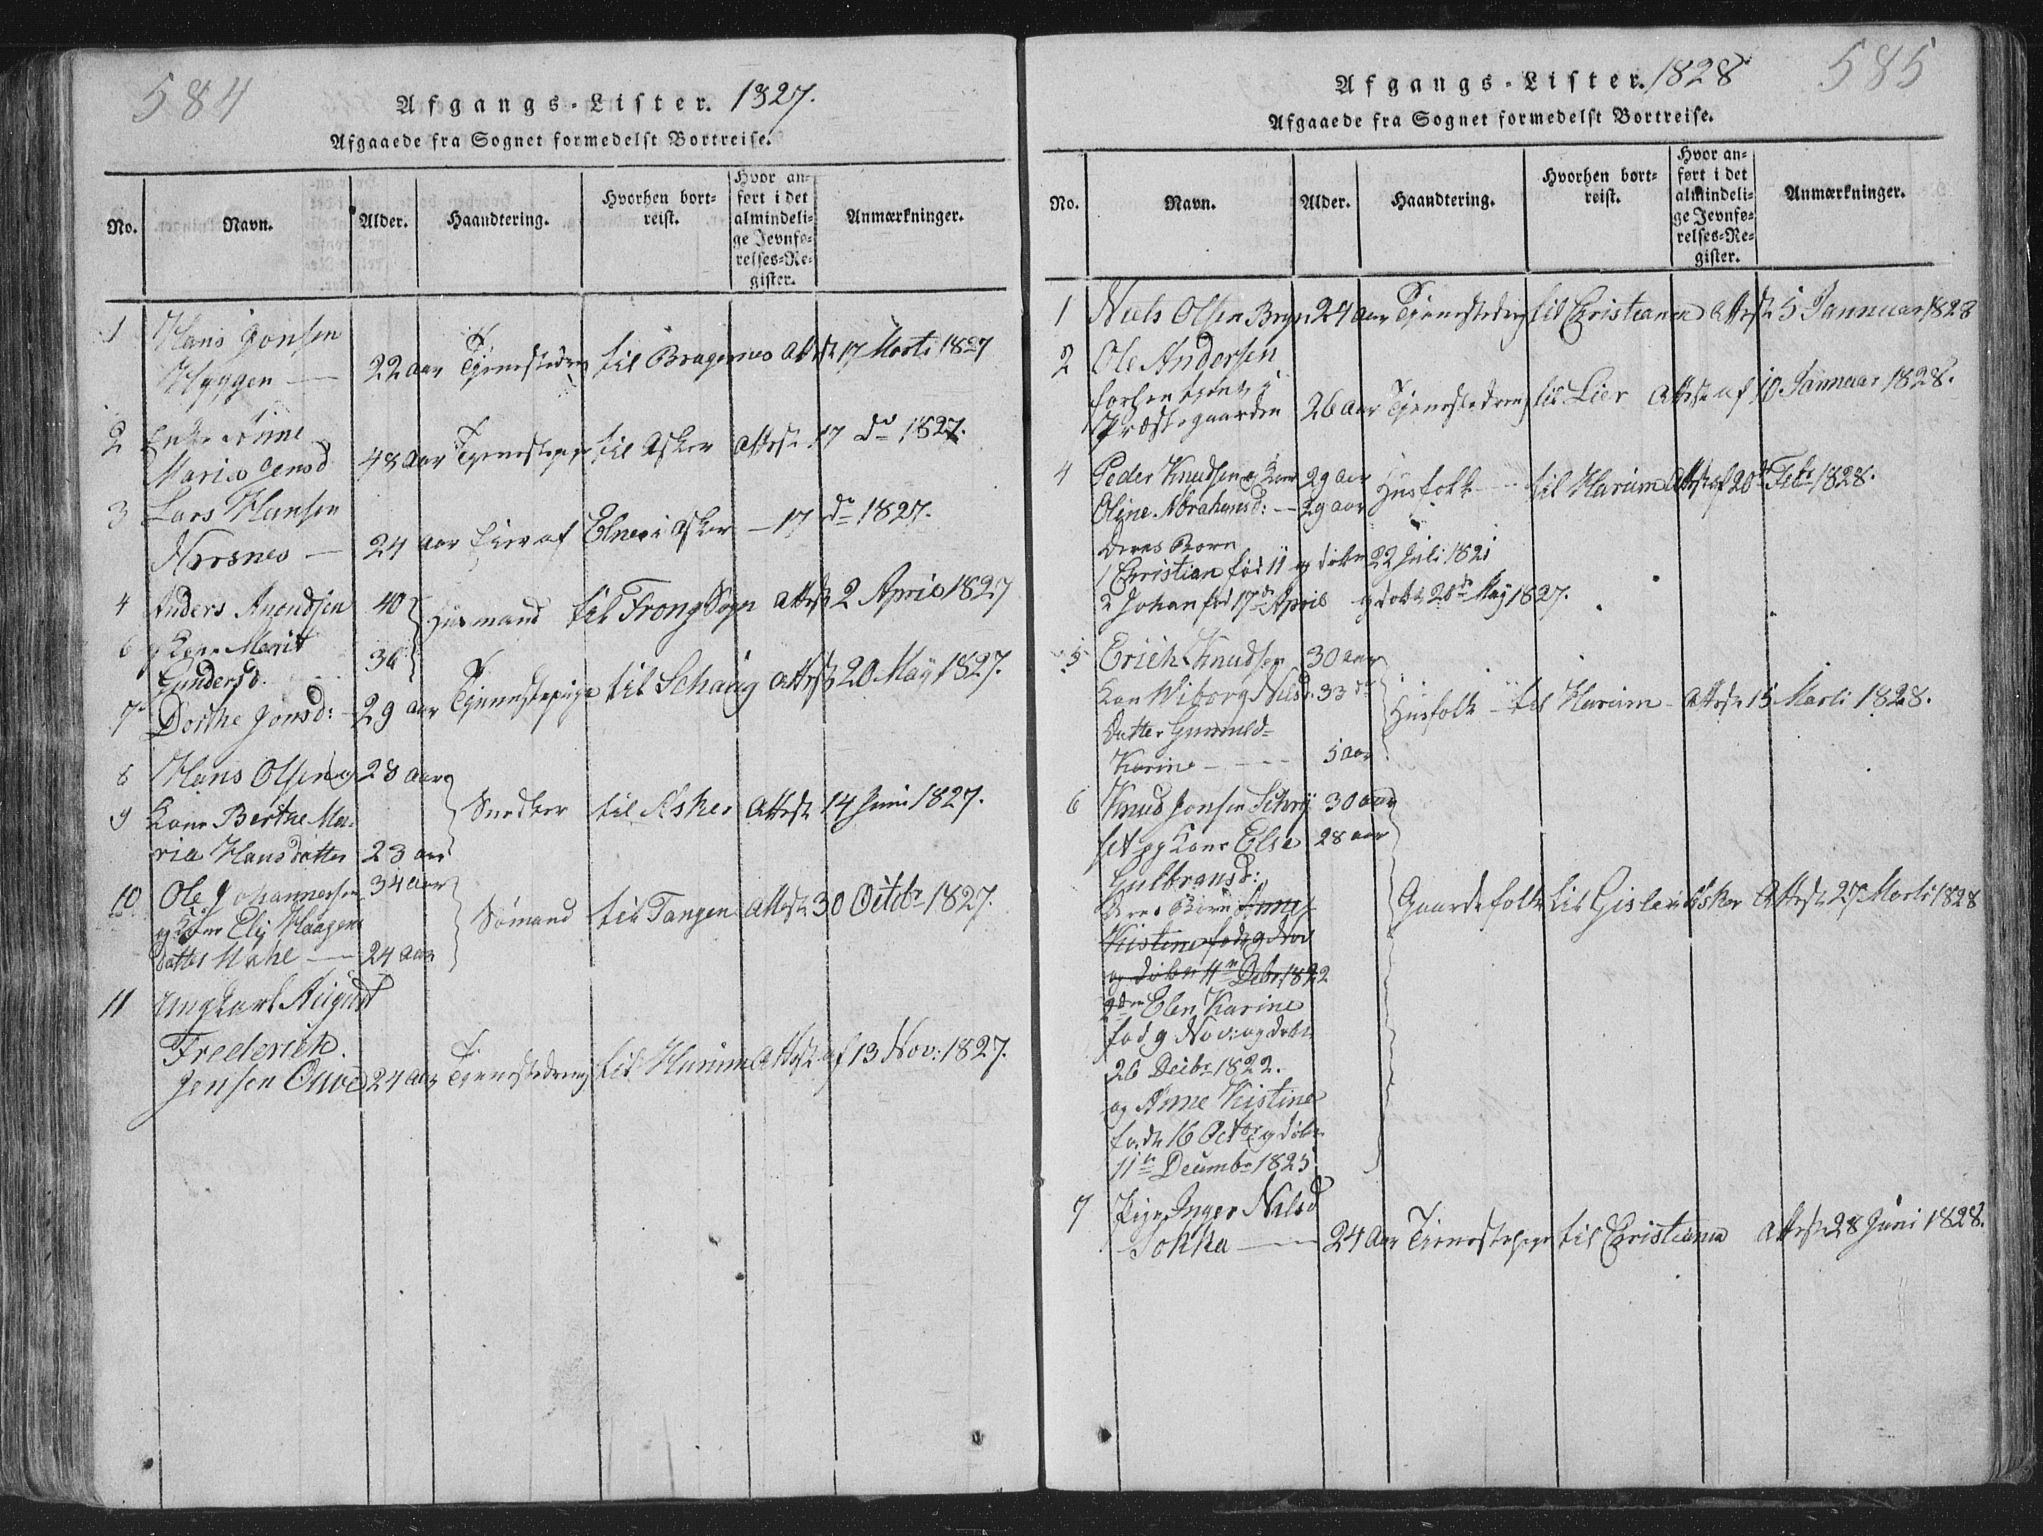 584
Afgangs-Lister. 1827.
Afgaaede fra Sognet formedelst Bortreise.
No. Navn. Alder. Haandtering. Hvorhen bortreist. Hvor anført i det almindelige Jevnførelses-Register. Anmærkninger.
1 Hans Jonsen
Hyggen — 22 Aar Tjenestedreng til Bragernes Attest 17 Marti 1827
2 Enke Anne
Maria Jensd 48 Aar Tjenestepige til Asker Attest 17 do 1827.
3 Lars Hansen
Nærsnes — 24 Aar Eier af Elnes i Asker — 17 do 1827.
4 Anders Amundsen 40 Huusmand til Frong Sogn Attest 2 April 1827
6 Kone Marit
Gundersd. 36
7 Dorthe Jonsd: 29 aar Tjenestepige til Schaug Attest 20 May 1827.
8 Hans Olsen og 28 Aar
9 Kone Berthe Ma- Snedker til Asker Attest 14 Juni 1827.
ria Hansdatter 23 aar
10 Ole Johannesen 34 Aar
og Kone Elij Haagens Sømand til Tangen Attest 30 Octobr 1827.
datter — 24 Aar
11 Ungkarl August
Frederich
Jensen 24 Aar Tjenestedreng til Hurum Attest af 13 Nov: 1827.
585
Afgangs-Lister. 1828
Afgaaede fra Sognet formedelst Bortreise.
No. Navn. Alder. Haandtering. Hvorhen bortreist. Hvor anført i det almindelige Jevnførelses-Register. Anmærkninger.
1 Niels Olsen 24 Aar Tjenestedreng til Christiania Attest 5 Januar 1828
2 Ole Andersen
forhen tjent i
Præstegaarden 26 Aar Tjenestedreng til Lier Attest af 10 Januar 1828.
4 Peder Knudsen og Kone 29 aar Husfolk — til Hurum Attest af 20de Febr 1828.
Oline Abrahamsd: — 29 aar
deres Børn
1 Christian fød 11 og døbt 22 Juli 1821
2 Johan fød 17de April og døbt 20de May 1827.
5 Erich Knudsen 30 aar
Kone Wiborg Nilsd. 33 do Husfolk — til Hurum — Attest 15 Marti 1828.
Datter Gunnild-
Karine — 5 aar
6 Knud Jonsen 30 aar
set og Kone Else 28 aar
Gulbransd:
deres Børn Anne Gaardefolk til Gisle i Asker Attest 27 Marti 1828
Kistine fød 9 Nov
og døbt 11te Decbr 1822
Elen Karine
fød 9 Nov: og døbt
26 Decbr 1822.
og Anne Kistine
født 16 Octbr og døbt
11te Decembr 1825
7 Pige Inger Nilsd
Sokka — 24 Aar Tjenestepige til Christiania Attest 28 Juni 1828.